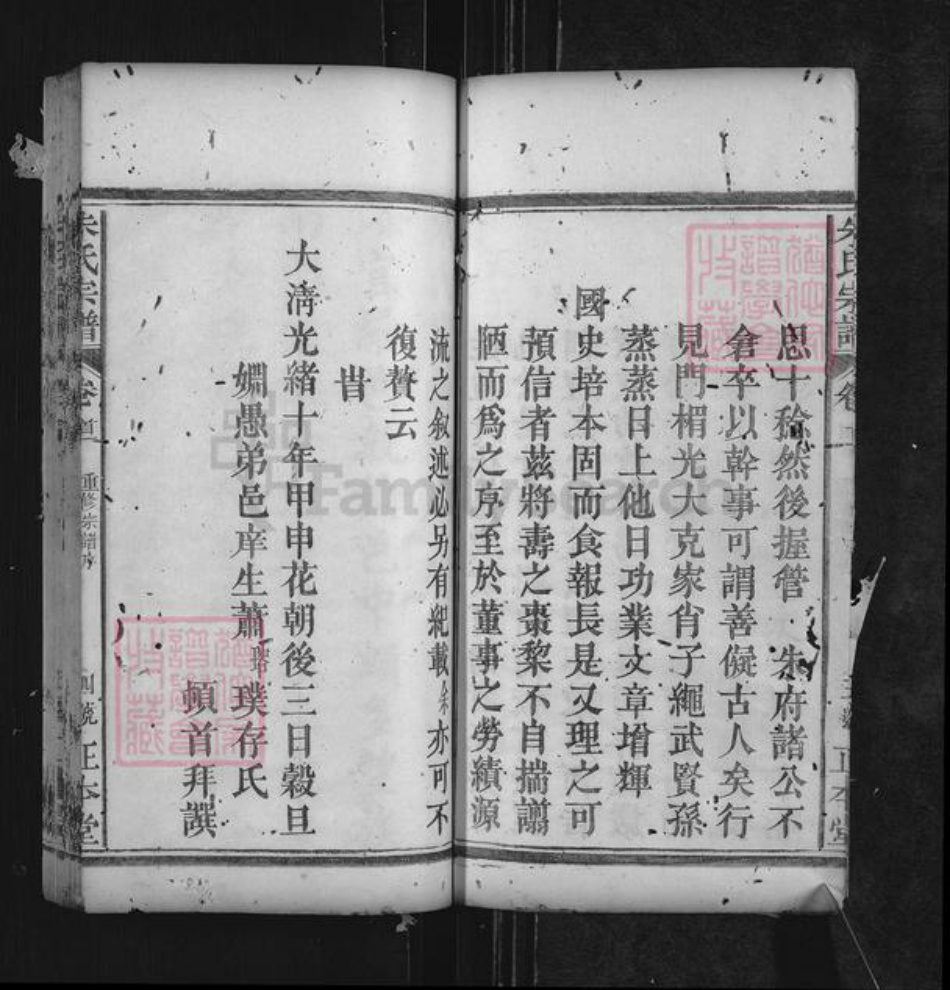 思十稔然後握管 朱府諸公不
倉卒以幹事可謂善儗古人矣行
見門楣光大克家肖子繩武賢孫
蒸蒸日上他日功業文章增輝
國史培本固而食報長是又理之可
預信者茲將壽之棗黎不自揣謭
陋而爲之序至於董事之勞績源
流之叙述必另有紀載余亦可不
復贅云
旹
大淸光緒十年甲申花朝後三日穀旦
姻愚弟邑庠生蕭瑎璞存氏
頓首拜譔
朱氏宗譜
卷
重修宗譜序
四號
正本堂
FamilySearch